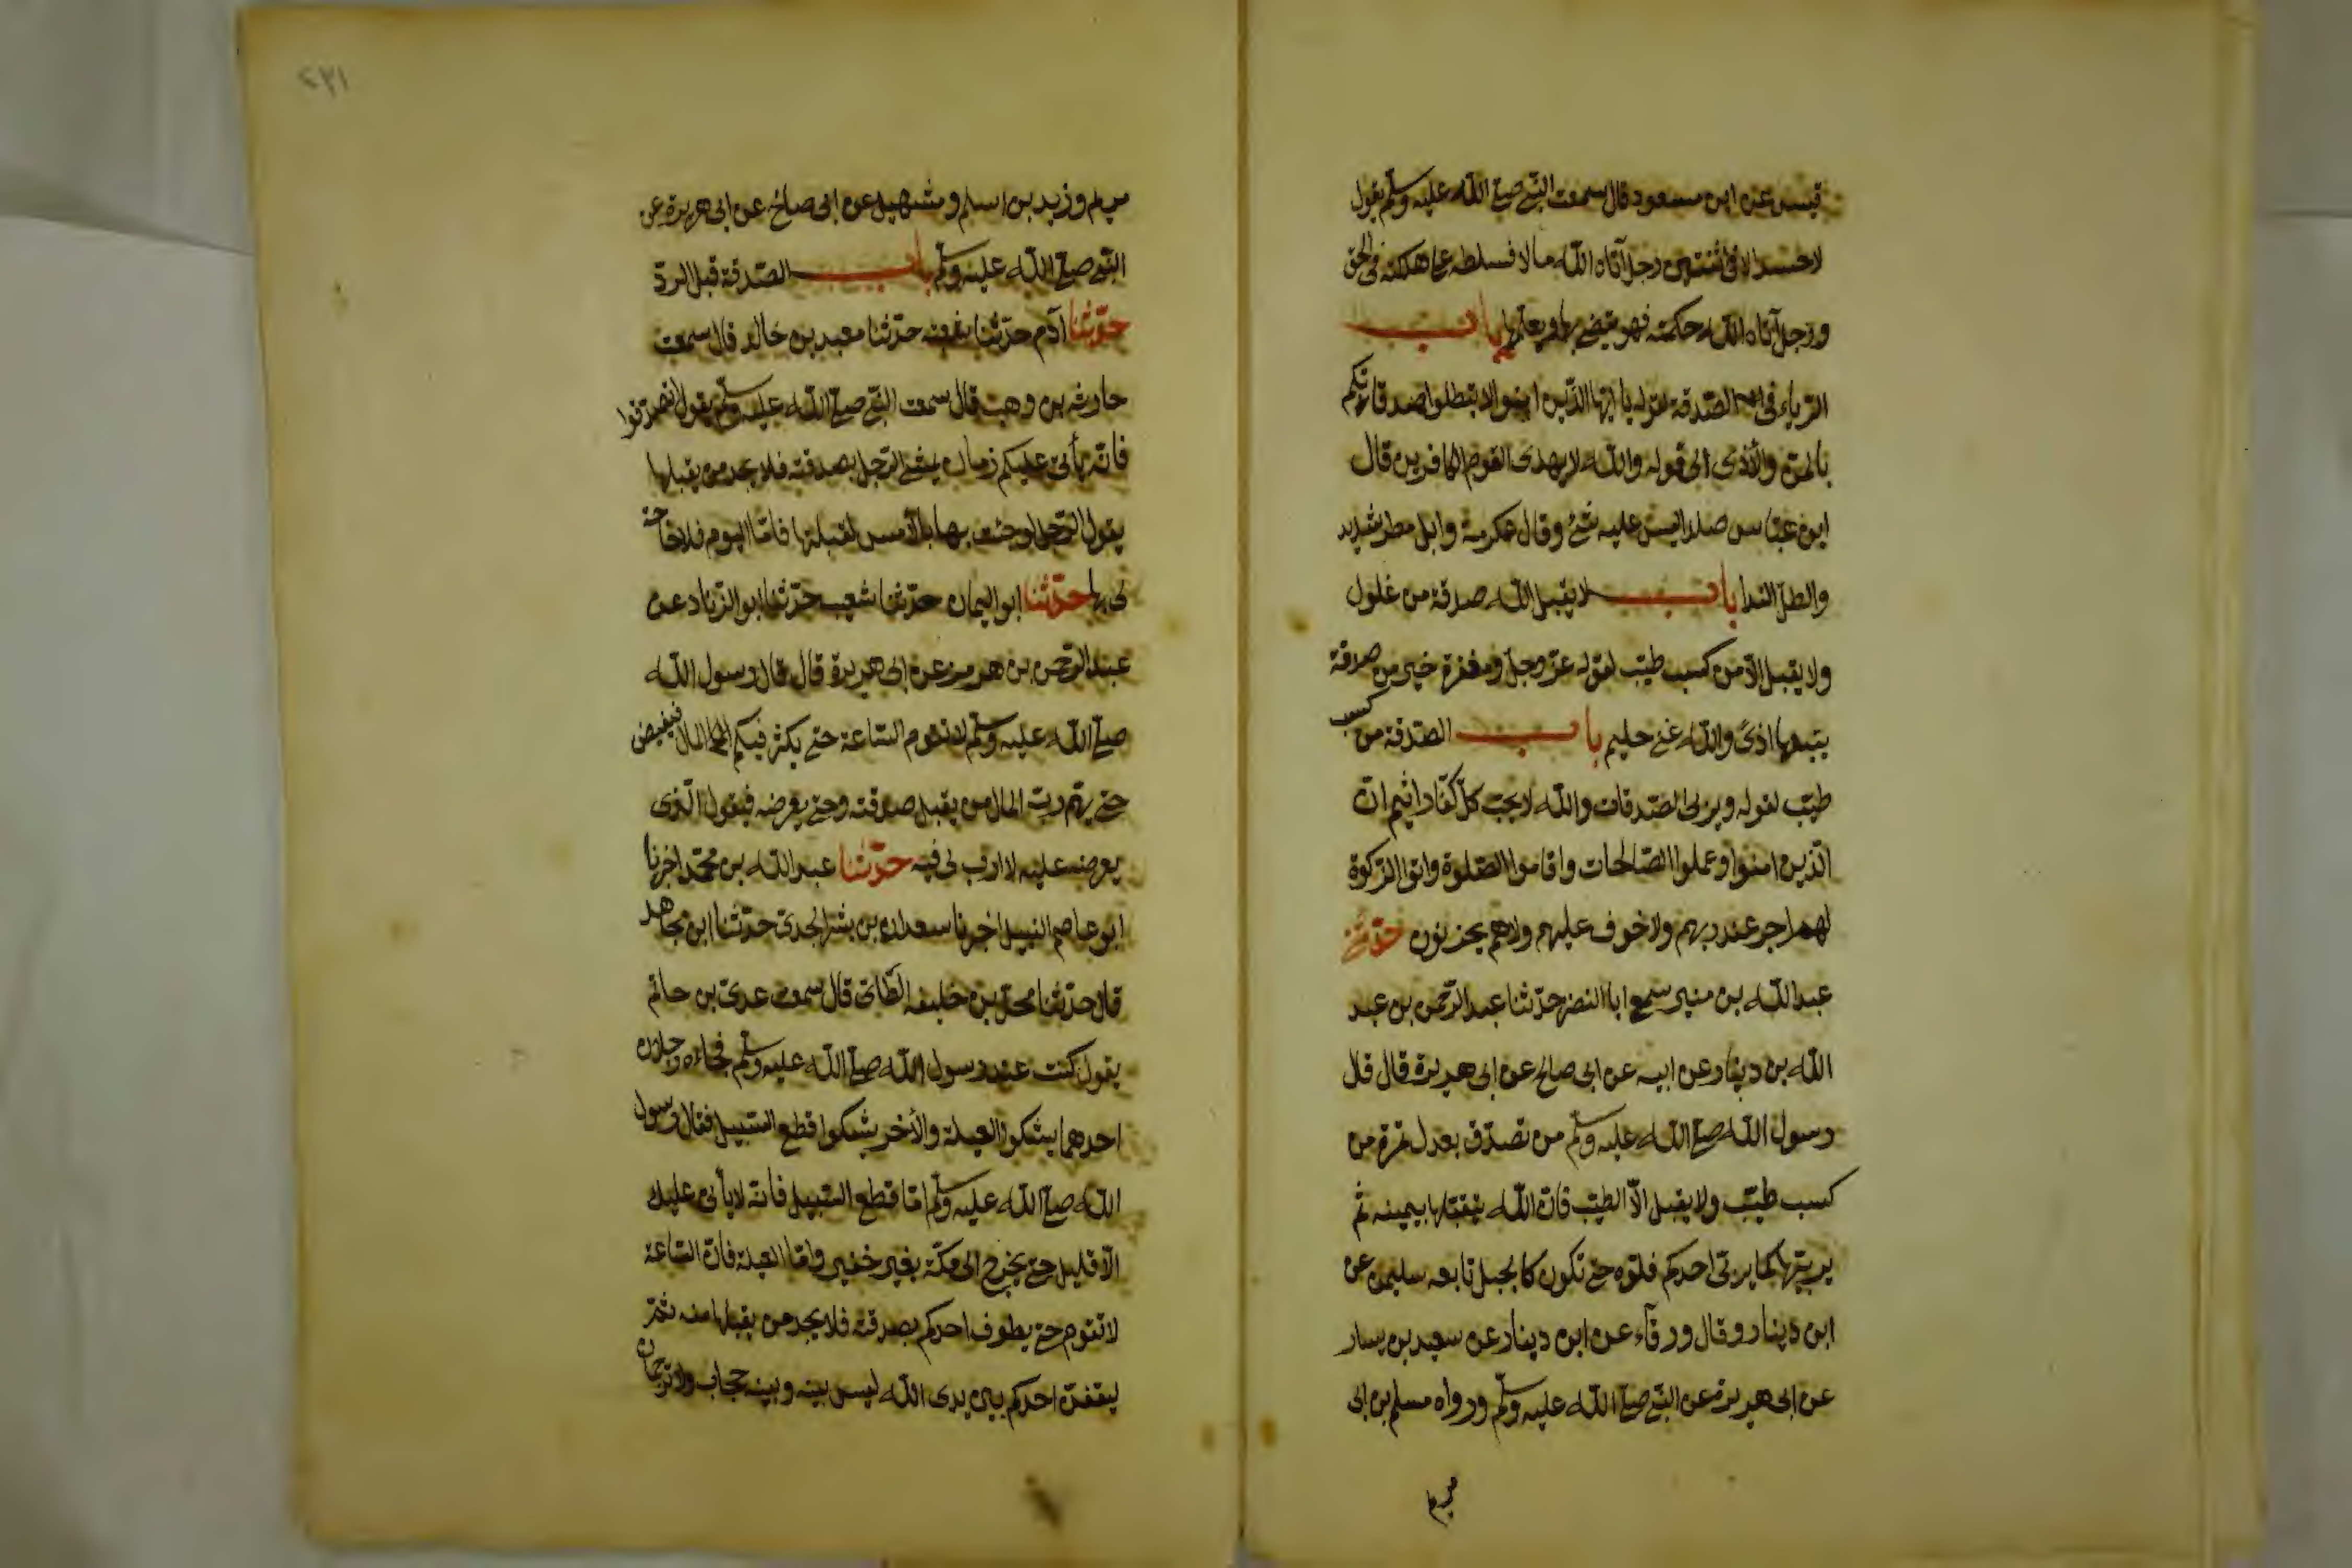 قيس عن ابن مسعود قال سمعت النبي صلى الله عليه وسلم يقول
لا حسد الا في اثنتين رجل آتاه الله مالا فسلطه على هلكته في الحق
ورجل آتاه الله حكمة فهو يقضي بها ويعلمها باب
الرياء في الصدقة لقوله يا ايها الذين امنوا لا تبطلوا صدقاتكم
بالمن والأذى الى قوله والله لا يهدي القوم الكافرين قال
ابن عباس صلدا ليس عليه شئ وقال عكرمة وابل مطر شديد
والطل الندا باب لا يقبل الله صدقة من غلول
ولا يقبل الا من كسب طيب لقوله عز وجل ومغفرة خير من صدقة
يتبعها اذى والله غني حليم باب الصدقة من كسب
طيب لقوله ويربي الصدقات والله لا يحب كل كفار اثيم ان
الذين امنوا وعملوا الصالحات واقاموا الصلوة واتوا الزكوة
لهم اجر عند ربهم ولا خوف عليهم ولا هم يحزنون حدثنا
عبد الله بن منير سمع ابا النضر حدثنا عبد الرحمن بن عبد
الله بن دينار عن ابيه عن ابي صالح عن ابي هريرة قال قال
رسول الله صلى الله عليه وسلم من تصدق بعدل تمرة من
كسب طيب ولا يقبل الا الطيب فان الله يتقبلها بيمينه ثم
يربيها كما يربي احدكم فلوه حتى تكون كالجبل تابعه سليمن عن
ابن دينار وقال ورقآء عن ابن دينار عن سعيد بن يسار
عن ابي هريرة عن النبي صلى الله عليه وسلم ورواه مسلم بن ابي
مريم
٤٣١
مريم وزيد بن اسلم وسهيل عن ابي صالح عن ابي هريرة عن
النبي صلى الله عليه وسلم باب الصدقة قبل الرد
حدثنا آدم حدثنا شعبة حدثنا معبد بن خالد قال سمعت
حارثه بن وهب قال سمعت النبي صلى الله عليه وسلم يقول تصدقوا
فانه يأتي عليكم زمان يمشي الرجل بصدقته فلا يجد من يقبلها
يقول الرجل لو جئت بها بالأمس لقبلتها فاما اليوم فلا حاجة
لي بها حدثنا ابو اليمان حدثنا شعيب حدثنا ابو الزناد عن
عبد الرحمن بن هرمز عن ابي هريرة قال قال رسول الله
صلى الله عليه وسلم لا تقوم الساعة حتى يكثر فيكم المال فيفيض
حتى يهم رب المال من يقبل صدقته وحتى يعرضه فيقول الذي
يعرضه عليه لا ارب لي فيه حدثنا عبد الله بن محمد اخبرنا
ابو عاصم النبيل اخبرنا سعدان بن بشر الجدي حدثنا ابن مجاهد
قال حدثنا محل بن خليفه الطائي قال سمعت عدي بن حاتم
يقول كنت عند رسول الله صلى الله عليه وسلم فجاءه رجلان
احدهما يشكوا العيلة والأخر يشكوا قطع السبيل فقال رسول
الله صلى الله عليه وسلم اما قطع السبيل فانه لا يأتي عليك
الا قليل حتى يخرج الى مكة بغير خفير واما العيلة فان الساعة
لا تقوم حتى يطوف احدكم بصدقته فلا يجد من يقبلها منه ثم
ليقفن احدكم بين يدى الله ليس بينه وبينه حجاب ولا ترجمان